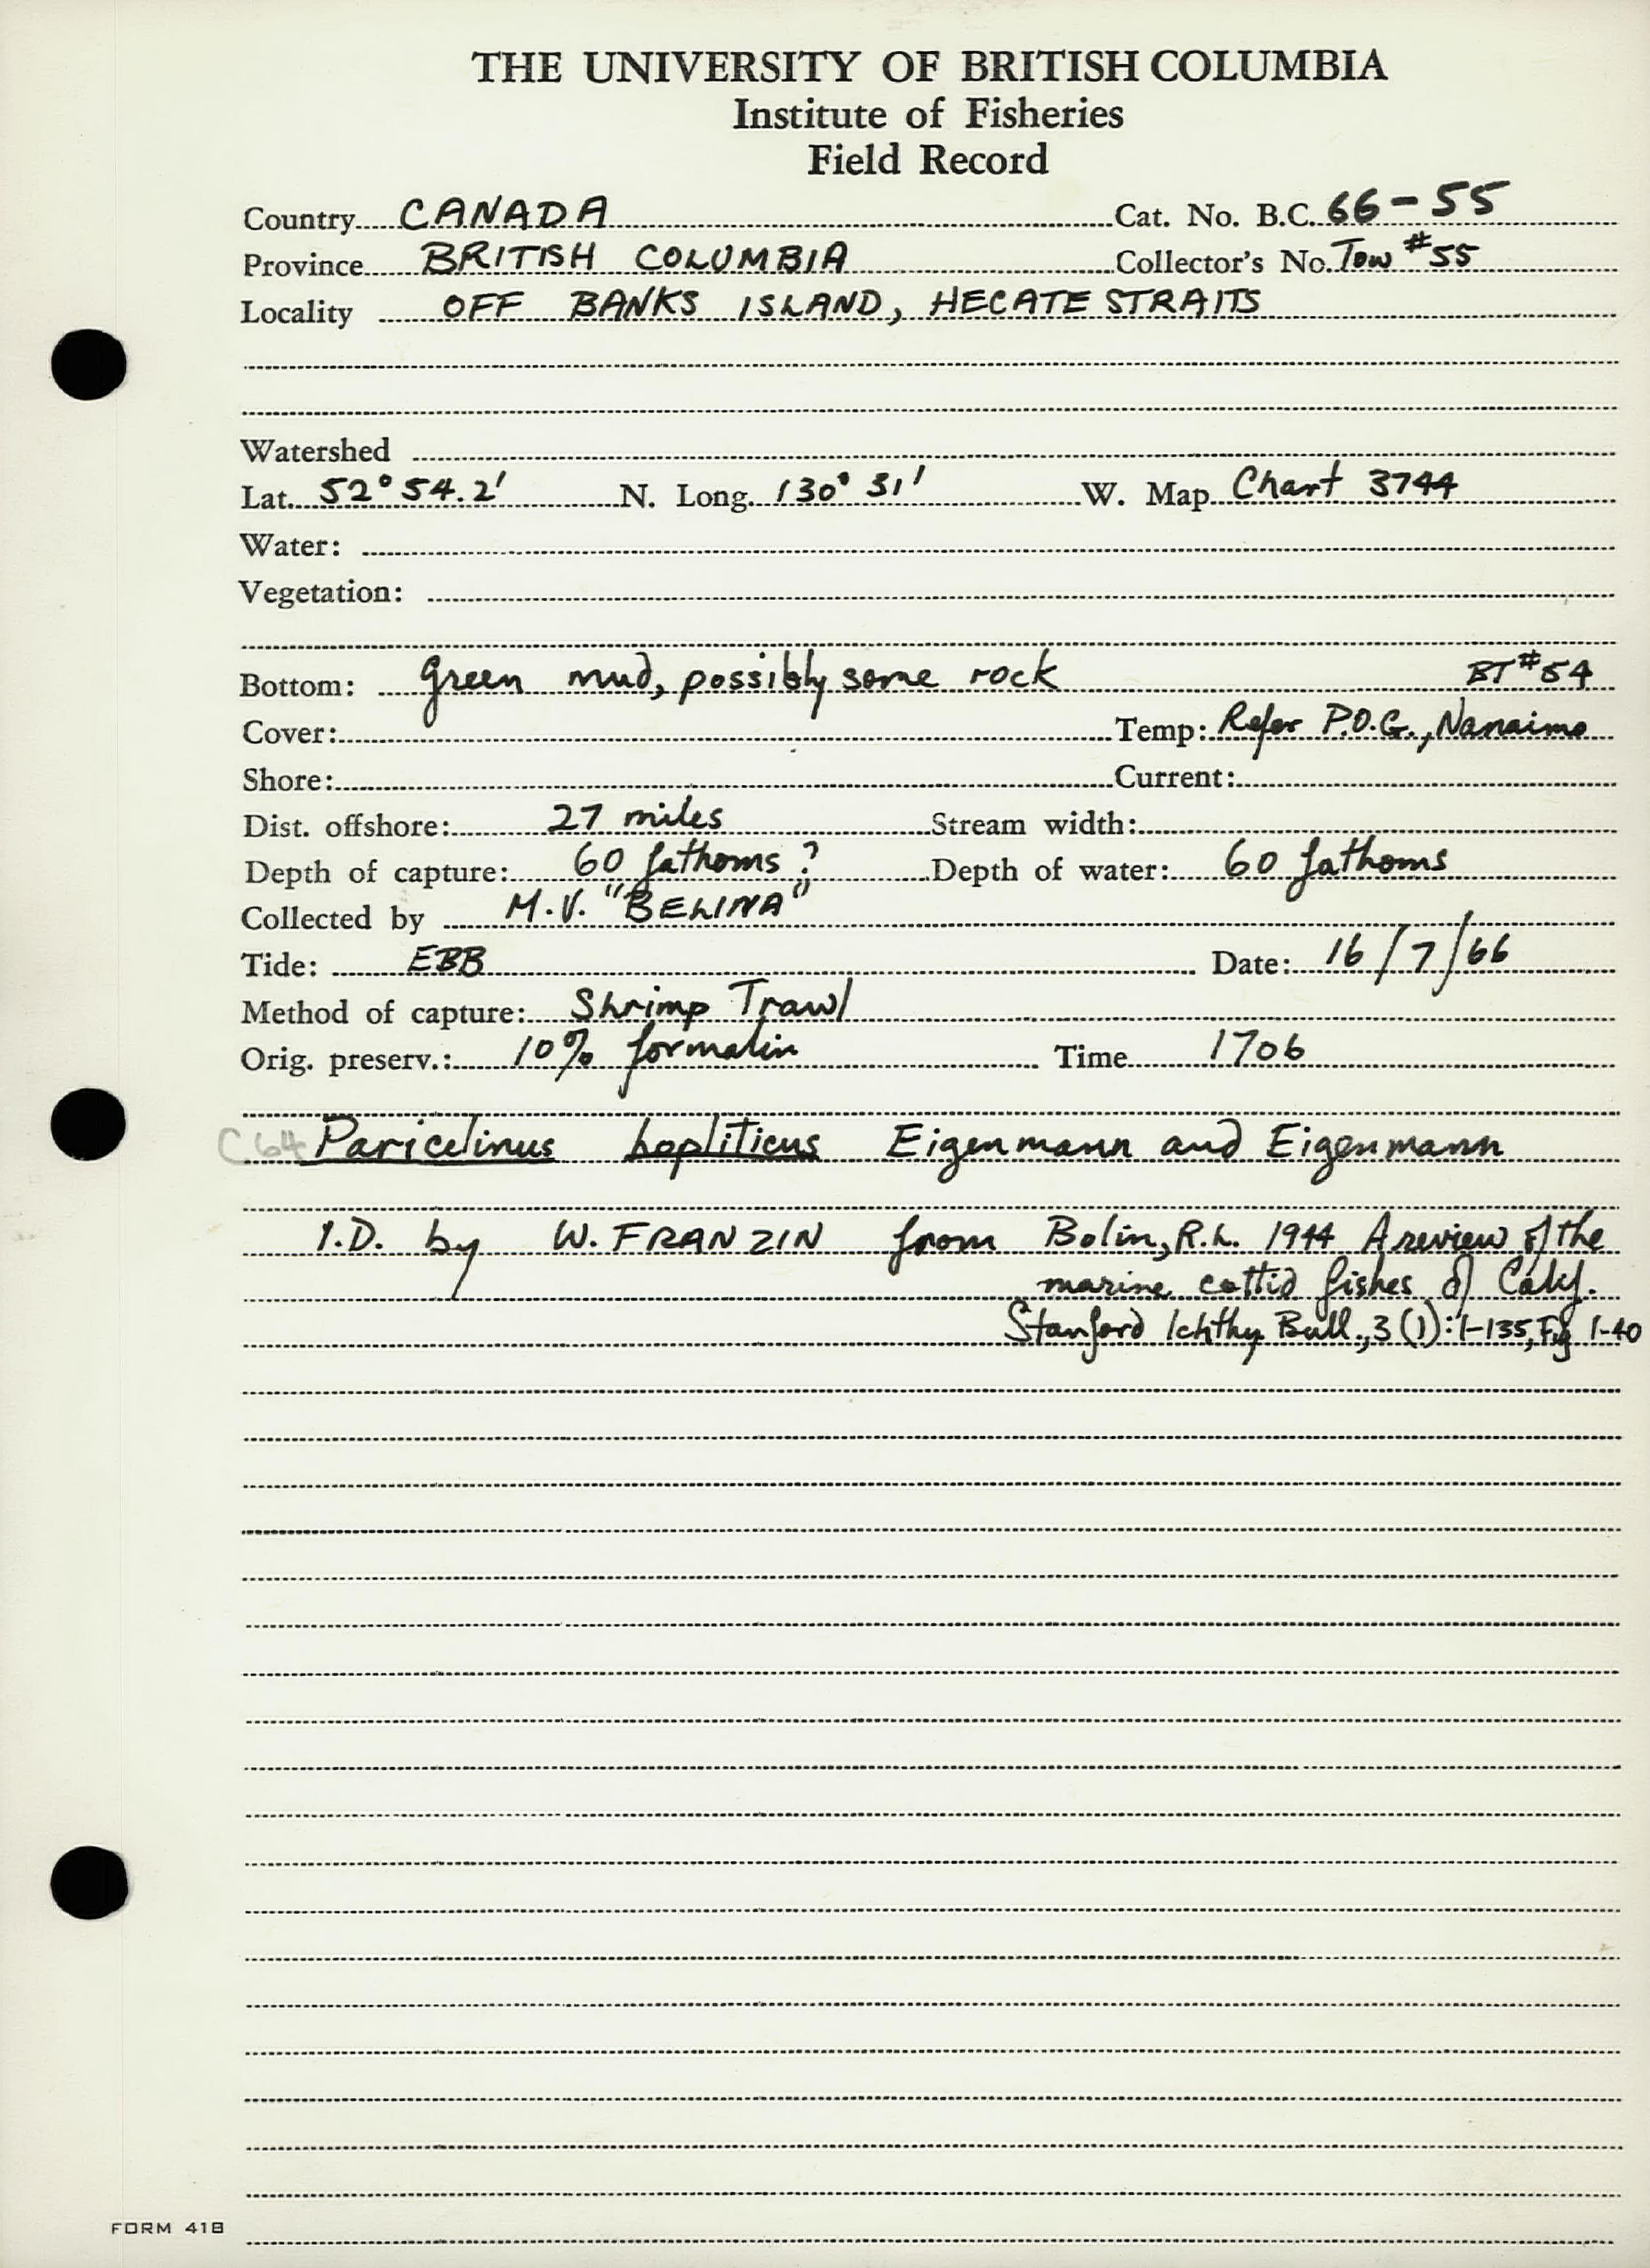 THE UNIVERSITY OF BRITISH COLUMBIA
Institute of Fisheries
Field Record
Country CANADA Cat. No. B.C. 66-55
Province BRITISH COLUMBIA Collector's No. Tow #55
Locality OFF BANKS ISLAND, HECATE STRAITS
Watershed
Lat. 52° 54.2' N. Long. 130° 31' W. Map Chart 3744
Water:
Vegetation:
Bottom: Green mud, possibly some rock BT #54
Cover: Temp: Refer P.O.G., Nanaimo
Shore: Current:
Dist. offshore: 27 miles Stream width:
Depth of capture: 60 fathoms ? Depth of water: 60 fathoms
Collected by M.V. "BELINA"
Tide: EBB Date: 16/7/66
Method of capture: Shrimp Trawl
Orig. preserv.: 10% formalin Time 1706
C64 Paricelinus hopliticus Eigenmann and Eigenmann
I.D. by W. FRANZIN from Bolin, R.L. 1944 A review of the
marine cottid fishes of Calif.
Stanford Ichthy Bull., 3 (1): 1-135, Fig 1-40
FORM 41B